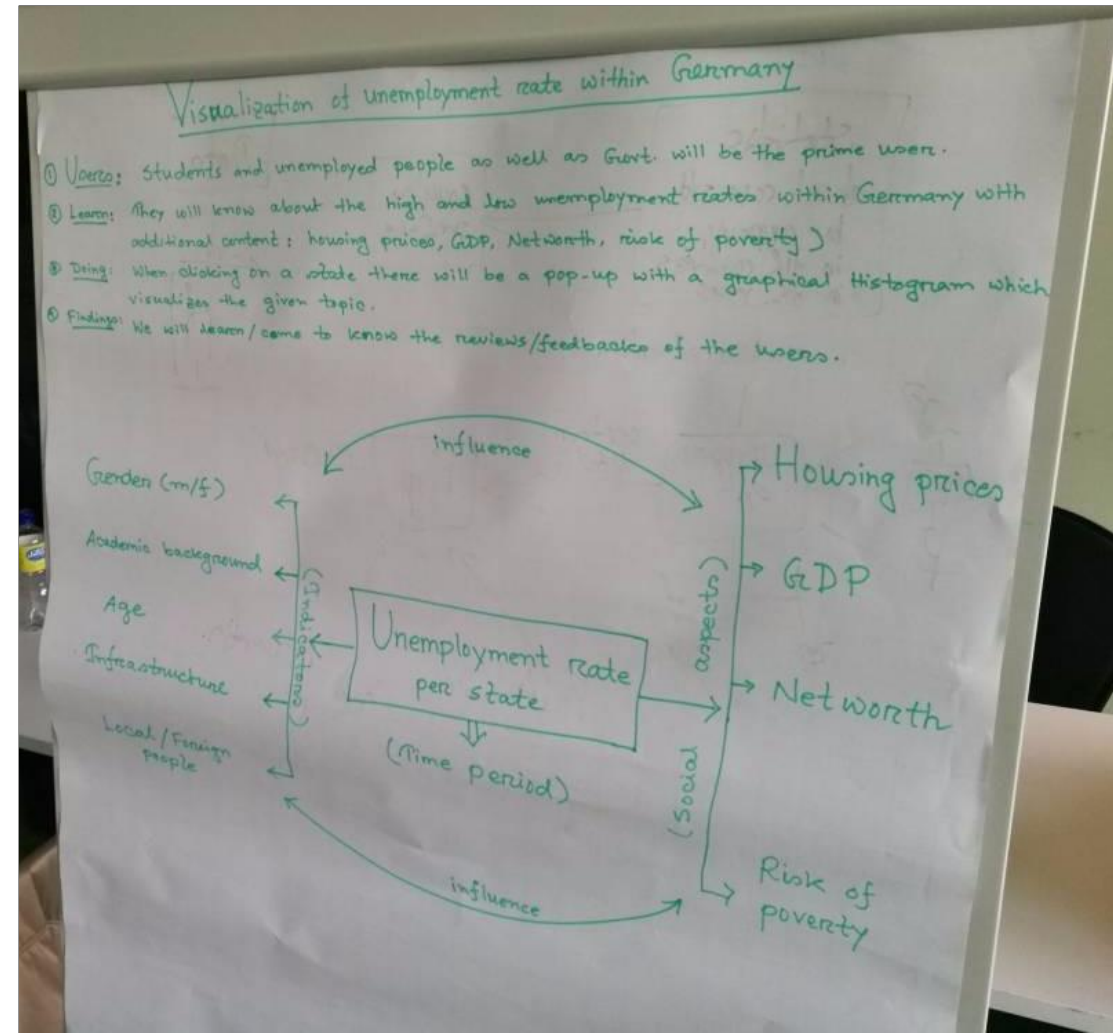 Visualization of unemployment rate within Germany
① Users: Students and unemployed people as well as Govt. will be the prime user.
② Learn: They will know about the high and low unemployment rates within Germany with
additional content: housing prices, GDP, Networth, risk of poverty)
③ Doing: When clicking on a state there will be a pop-up with a graphical Histogram which
visualizes the given topic.
④ Findings: We will learn/come to know the reviews/feedbacks of the users.
influence
Gender (m/f)
Academic background
Age
Infrastructure
Local/Foreign
people
(Indicators)
Unemployment rate
per state
(Time period)
(Social aspects)
Housing prices
GDP
Networth
Risk of
poverty
influence